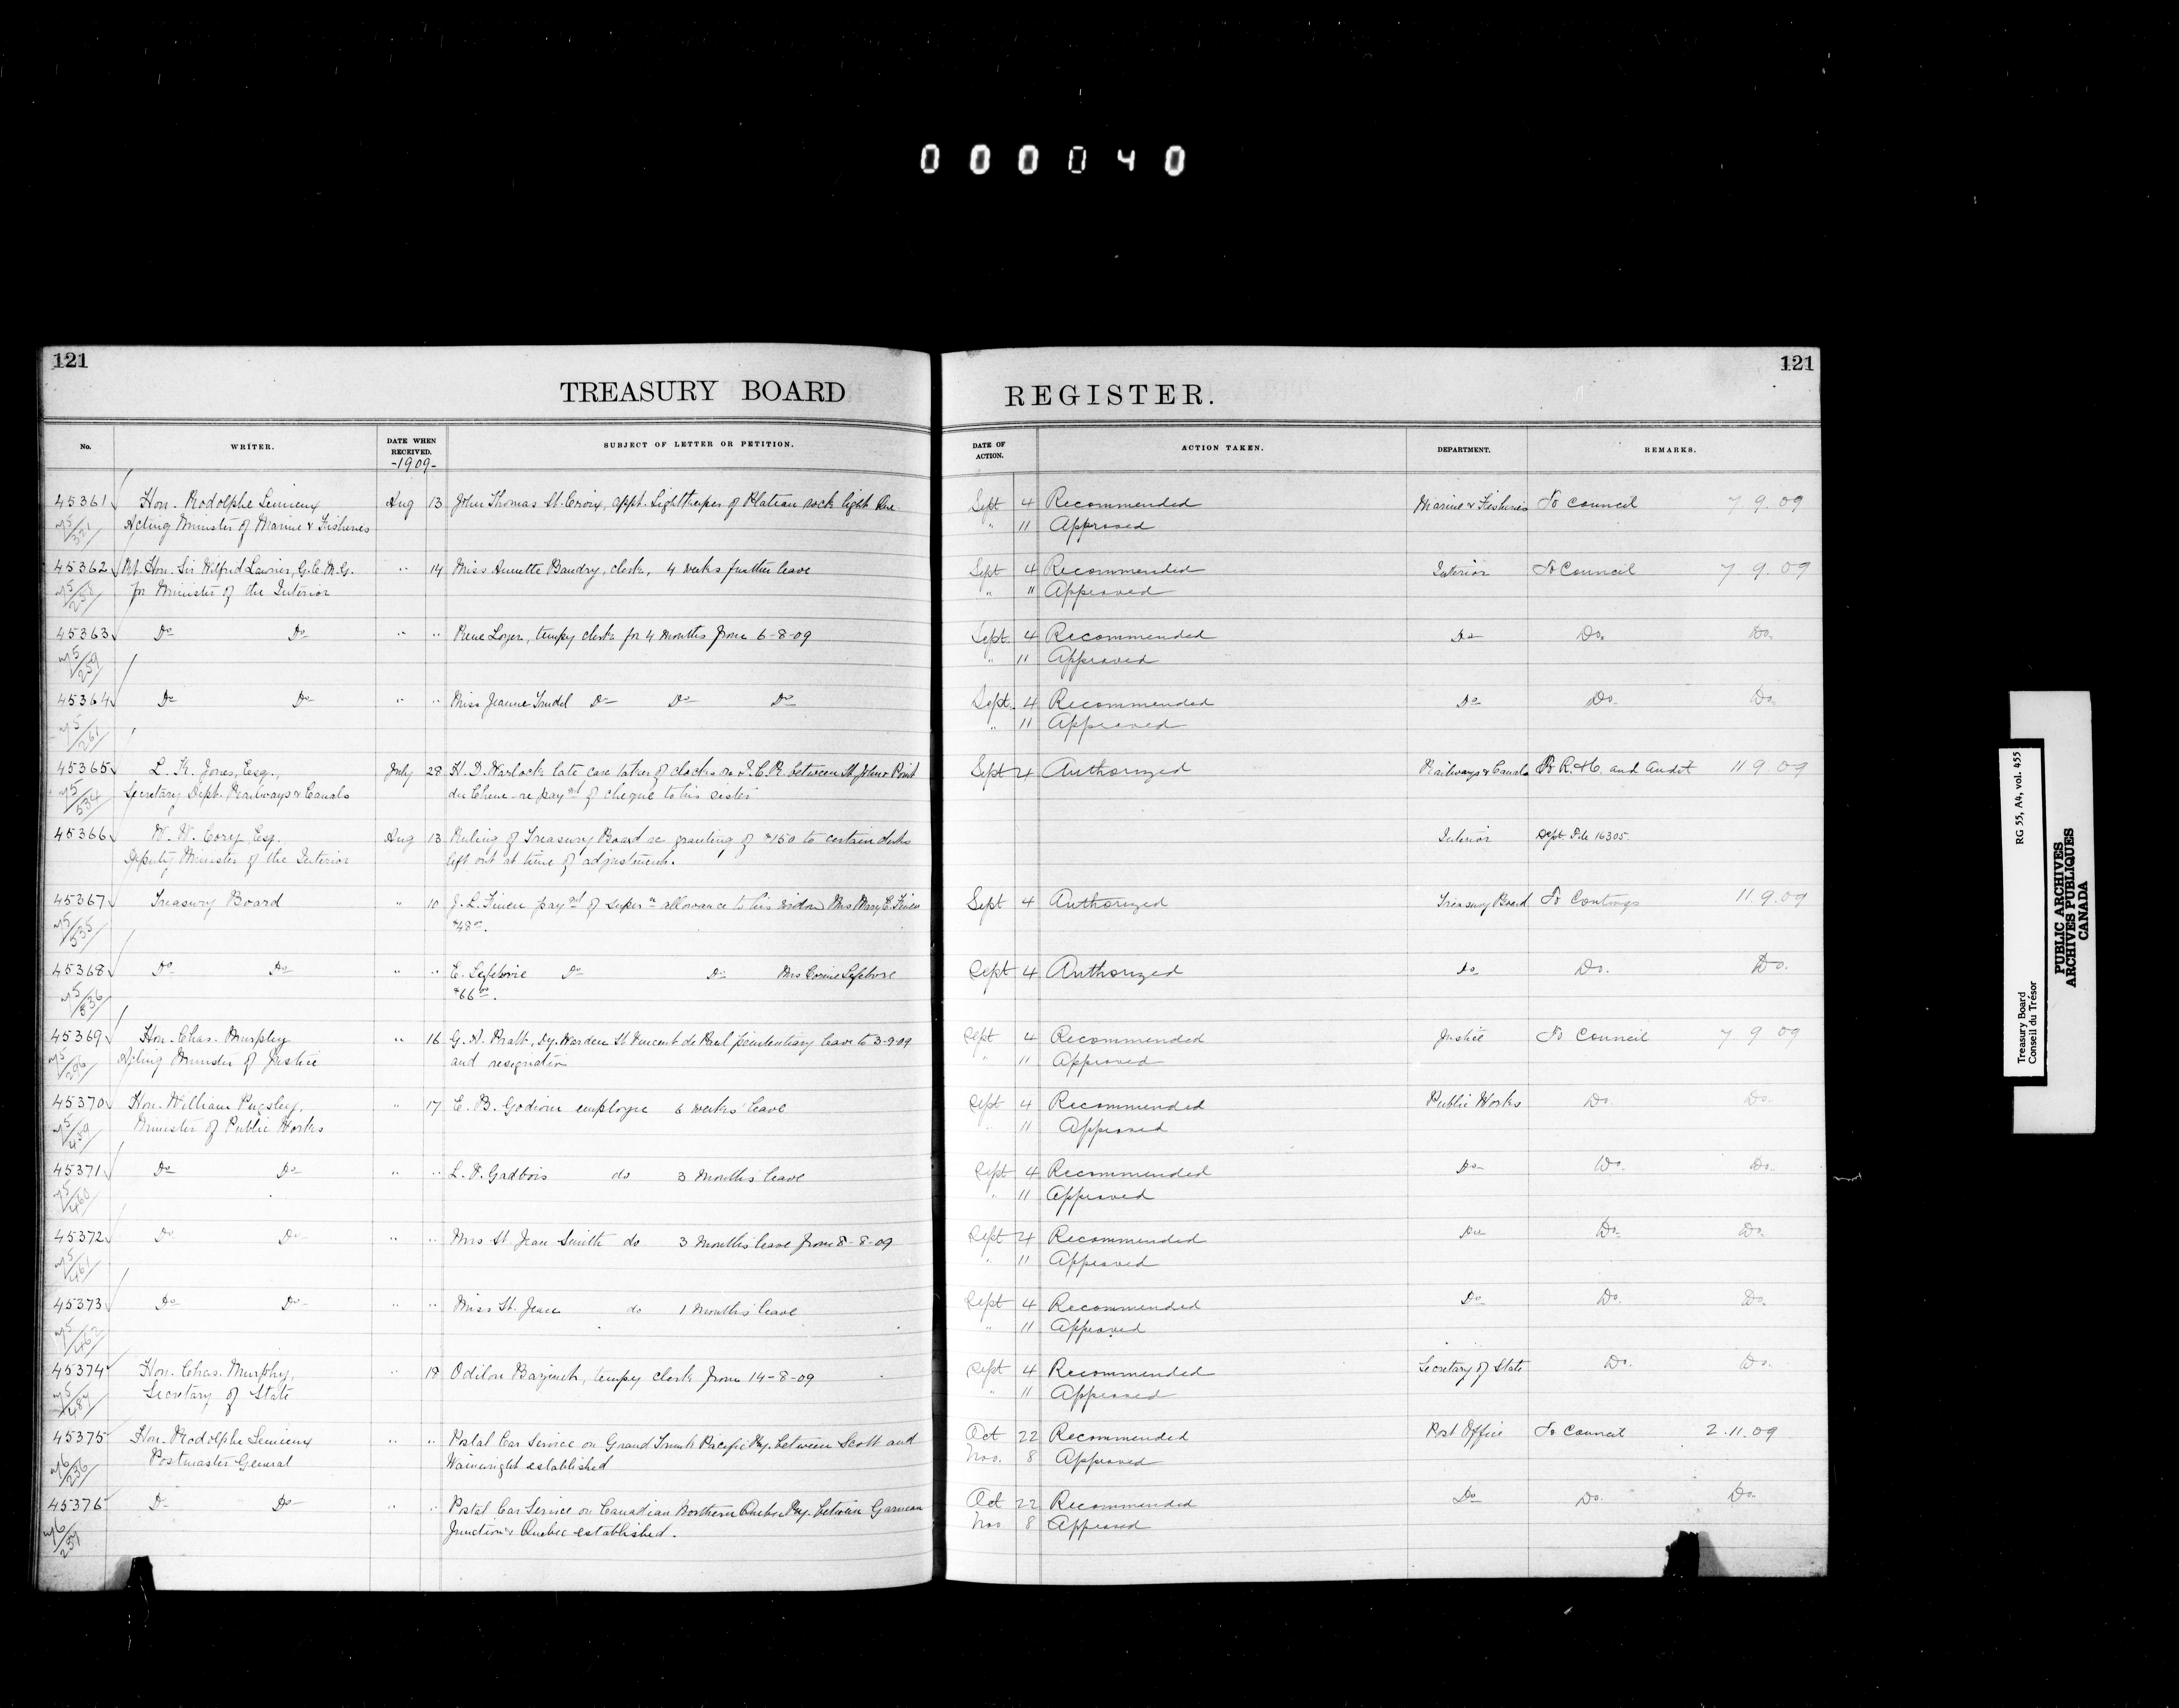 0 0 0 0 4 0
121
121
TREASURY BOARD REGISTER.
No. WRITER. DATE WHEN RECEIVED. SUBJECT OF LETTER OR PETITION. DATE OF ACTION. ACTION TAKEN. DEPARTMENT. REMARKS.
-1909-
45361 Hon. Rodolphe Lemieux Aug 13 John Thomas St. Croix, appt. Lightkeeper of Plateau rock light Sept 4 Recommended Marine & Fisheries To Council 7 9.09
Acting Minister of Marine & Fisheries " 11 Approved
45362 Rt. Hon. Sir Wilfrid Laurier, G.C.M.G. " 14 Miss Annette Baudry, clerk, 4 weeks further leave Sept 4 Recommended Interior To Council 7 9.09
for Minister of the Interior " 11 Approved
45363 Do Do " " Rene Lozer, tempy clerk for 4 months from 6-8-09 Sept. 4 Recommended Do Do. Do.
" 11 Approved
45364 Do Do " " Miss Jeanne Trudel Do Do Do Sept. 4 Recommended Do Do. Do.
" 11 Approved
45365 L. K. Jones, Esq., July 28 H. D. Warlock late care taker of clocks on I.C.R. between St. John & Point Sept 4 Authorized Railways & Canals To R. & C. and Audit 11 9 09
Secretary Dept. Railways & Canals du Chene - re paynt of cheque to his sister
45366 W. W. Cory, Esq. Aug 13 Ruling of Treasury Board re granting of $150 to certain clerks Interior Dept. File 16305.
Deputy Minister of the Interior left out at time of adjustment.
45367 Treasury Board " 10 J. L. paynt of super n allowance to his widow Mrs Mary E. Sept 4 Authorized Treasury Board To Contings 11.9.09
$48 00.
45368 Do Do " " E. Lefebvre Do Do Mrs Corine Lefebvre Sept 4 Authorized Do Do. Do.
$66 00.
45369 Hon. Chas. Murphy " 16 G. A. Pratt, Dy. Warden St. Vincent de Paul penitentiary leave to 3-9-09 Sept 4 Recommended Justice To Council 7 9 09
Acting Minister of Justice and resignation " 11 Approved
45370 Hon. William Pugsley, " 17 E. B. Godwin employee 6 weeks' leave Sept 4 Recommended Public Works Do. Do.
Minister of Public Works " 11 Approved
45371 Do Do " " L. V. Gadbois do 3 months' leave Sept 4 Recommended Do Do. Do.
" 11 Approved
45372 Do Do " " Mrs St. Jean Smith do 3 months' leave from 8-8-09 Sept 4 Recommended Do Do. Do.
" 11 Approved
45373 Do Do " " Miss St. Jean do 1 months' leave Sept 4 Recommended Do Do. Do.
" 11 Approved
45374 Hon. Chas. Murphy, " 18 Odilon tempy clerk from 14-8-09 Sept 4 Recommended Secretary of State Do. Do.
Secretary of State " 11 Approved
45375 Hon. Rodolphe Lemieux " " Postal Car Service on Grand Trunk Pacific Ry. between Scott and Oct 22 Recommended Post Office To Council 2.11.09
Postmaster General Wainwright established Nov. 8 Approved
45376 Do Do " " Postal Car Service on Canadian Northern Quebec Ry. between Garneau Oct 22 Recommended Do Do. Do.
Junction & Quebec established. Nov 8 Approved
Treasury Board RG 55, A4, vol. 455
Conseil du Trésor
PUBLIC ARCHIVES
ARCHIVES PUBLIQUES
CANADA